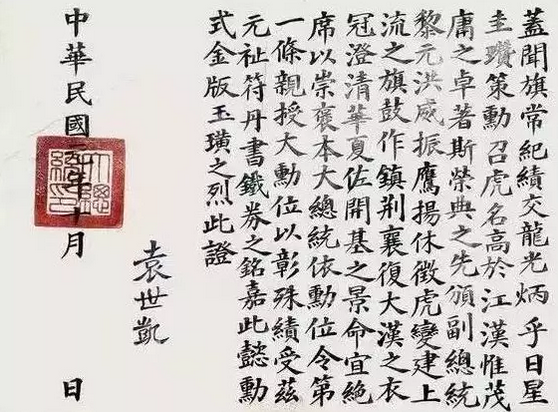 蓋聞旗常紀績交龍光炳乎日星
圭瓚策勳召虎名高於江漢惟茂
庸之卓著斯榮典之先頒副總統
黎元洪威振鷹揚休徵虎變建上
流之旗鼓作鎮荆襄復大漢之衣
冠澄清華夏佐開基之景命宜絶
席以崇褒本大總統依勳位令第
一條親授大勳位以彰殊績受茲
元祉符丹書鐵券之銘嘉此懿勳
式金版玉璜之烈此證
袁世凱
中華民國年十月 日